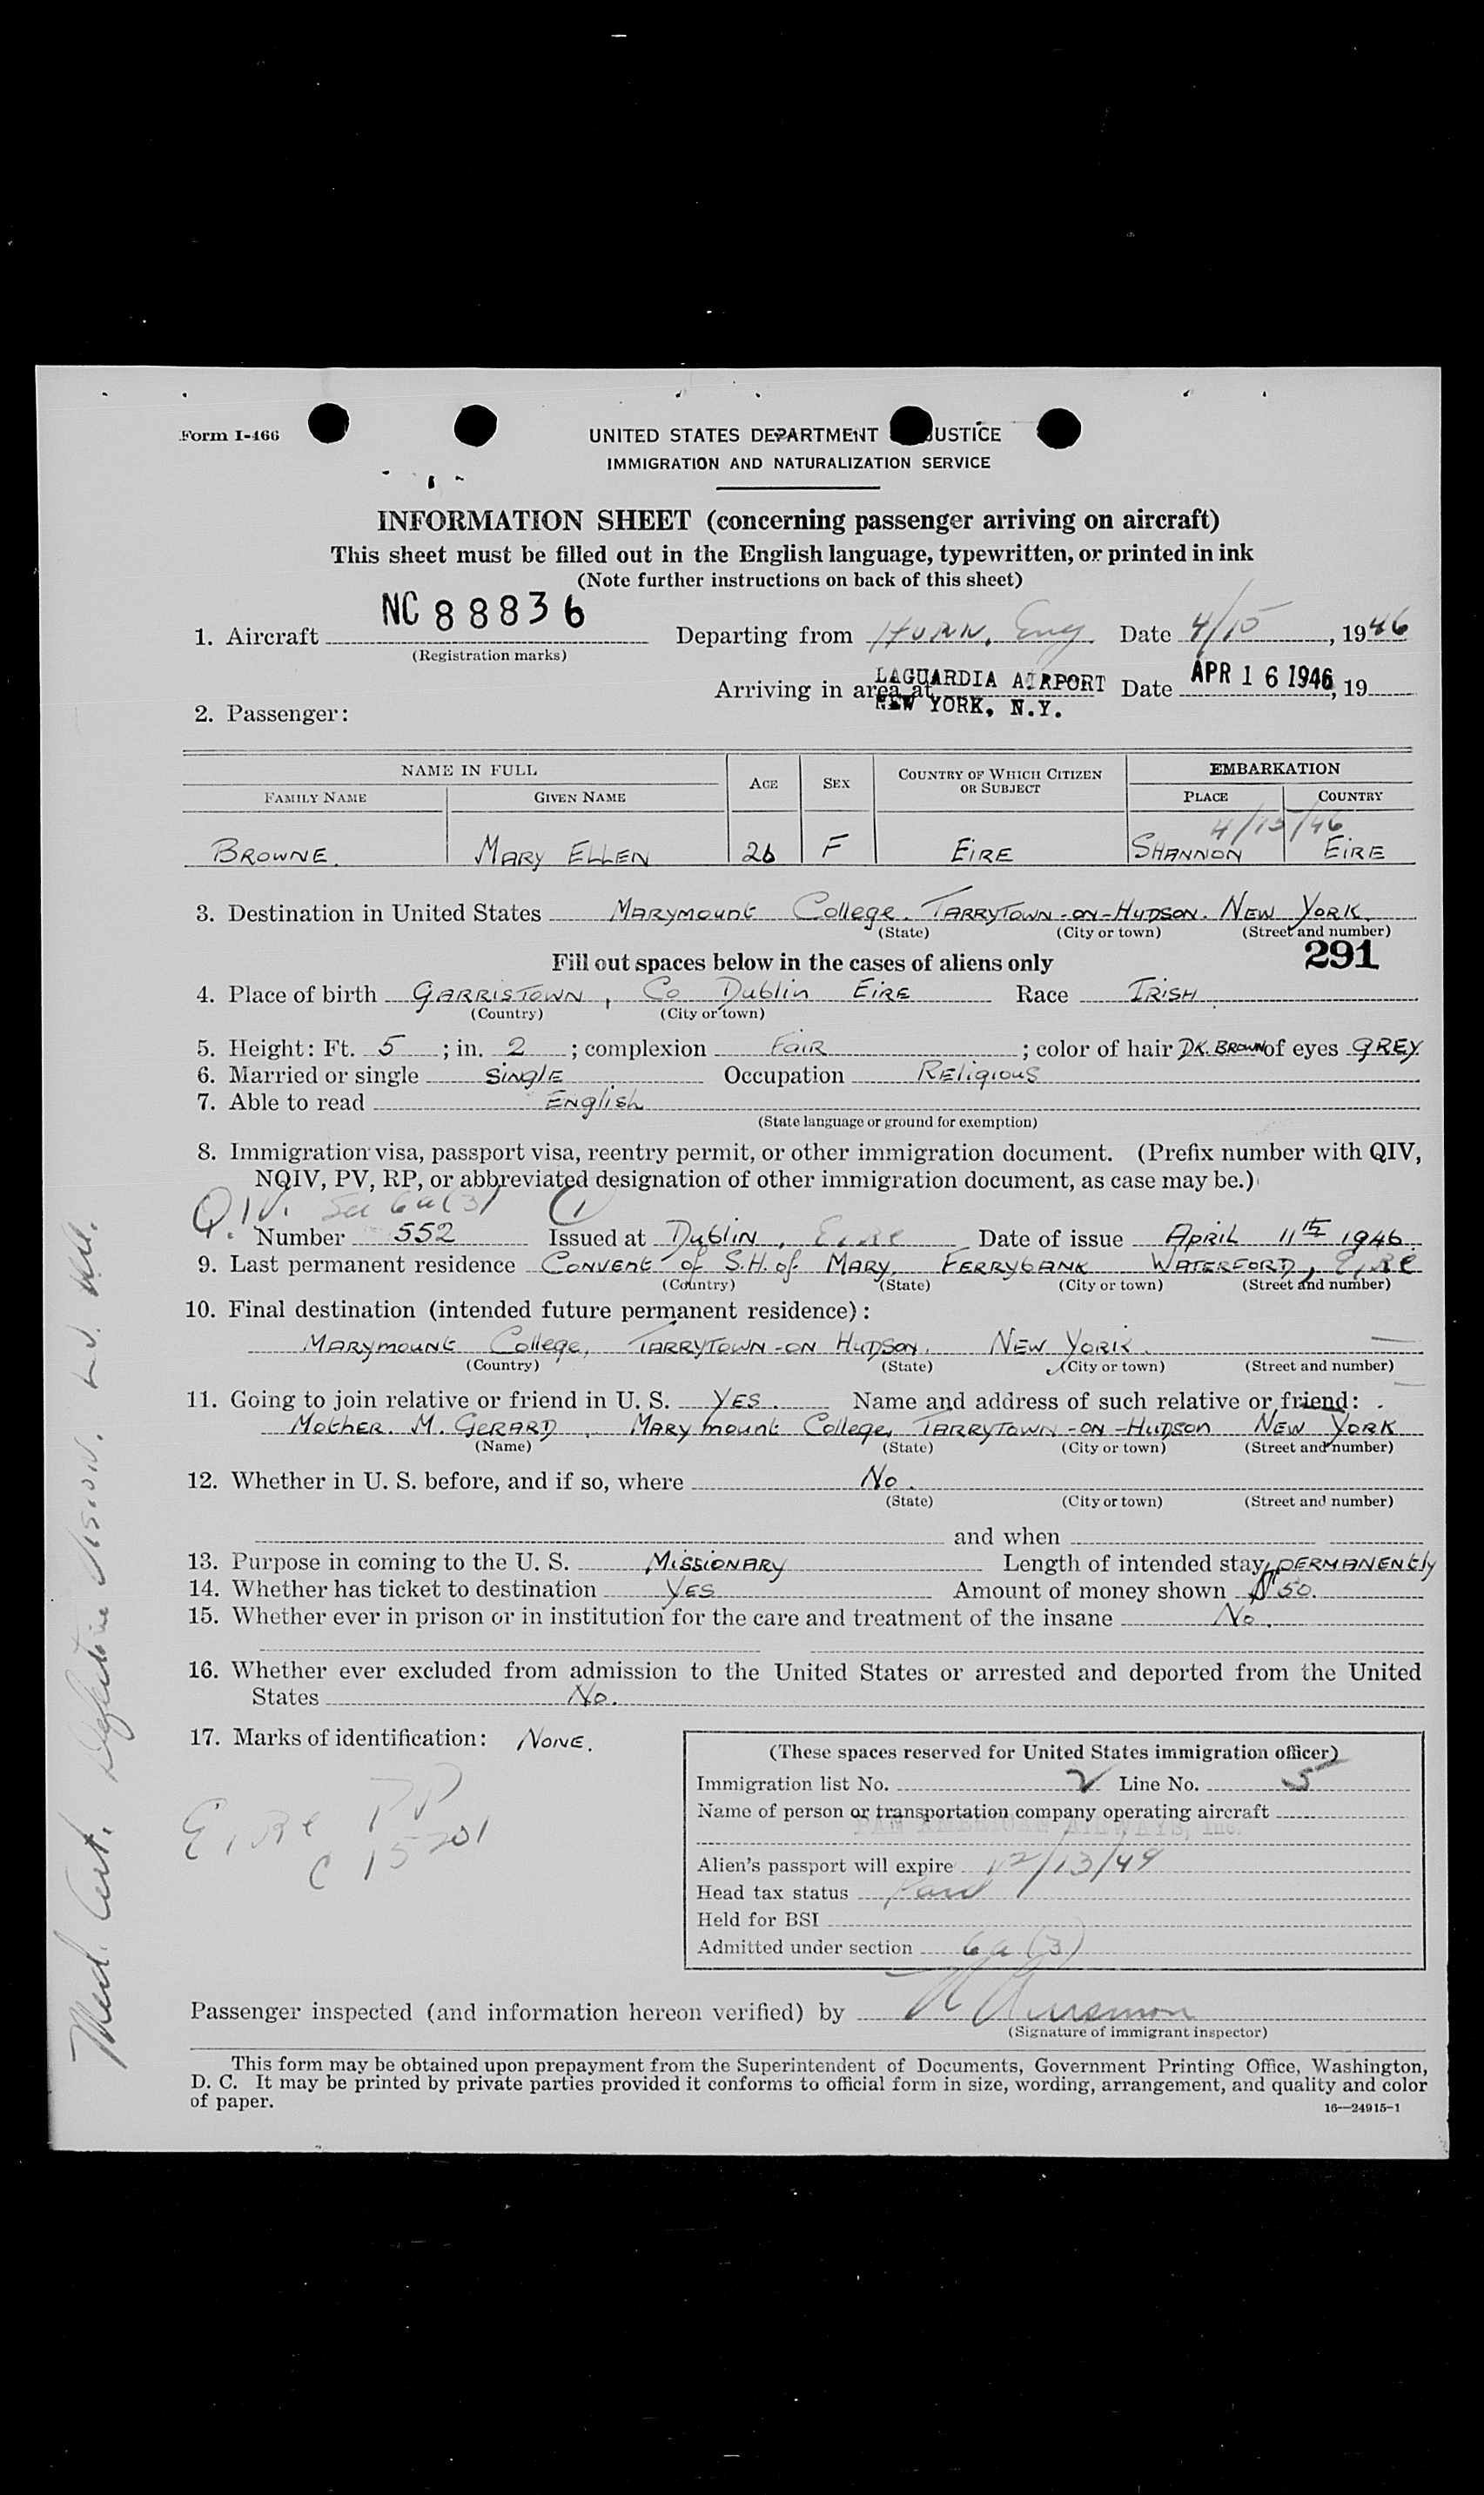 Form I-466
UNITED STATES DEPARTMENT JUSTICE
IMMIGRATION AND NATURALIZATION SERVICE
INFORMATION SHEET (concerning passenger arriving on aircraft)
This sheet must be filled out in the English language, typewritten, or printed in ink
(Note further instructions on back of this sheet)
1. Aircraft NC 88836 Departing from HURN, Eng. Date 4/15, 1946
(Registration marks)
Arriving in area at LAGUARDIA AIRPORT NEW YORK, N.Y. Date APR 16 1946, 19
2. Passenger:
NAME IN FULL AGE SEX COUNTRY OF WHICH CITIZEN OR SUBJECT EMBARKATION
FAMILY NAME GIVEN NAME PLACE COUNTRY
4/15/46
BROWNE. MARY ELLEN 26 F EIRE SHANNON EIRE
3. Destination in United States MARYMOUNt College. TARRYTOWN-ON-HUDSON. NEW YORK.
(State) (City or town) (Street and number)
291
Fill out spaces below in the cases of aliens only
4. Place of birth GARRISTOWN, Co Dublin EIRE Race IRISH
(Country) (City or town)
5. Height: Ft. 5; in. 2; complexion FAIR; color of hair DK. BROWN of eyes GREY
6. Married or single SINGLE Occupation RELIGIOUS
7. Able to read ENglish
(State language or ground for exemption)
8. Immigration visa, passport visa, reentry permit, or other immigration document. (Prefix number with QIV,
NQIV, PV, RP, or abbreviated designation of other immigration document, as case may be.)
QIV. Sec 6a(3) (1)
Number 552 Issued at Dublin, Eire Date of issue APRIL 11th 1946
9. Last permanent residence CONVENt of S.H. of MARY, FERRYBANK WATERFORD, Eire
(Country) (State) (City or town) (Street and number)
10. Final destination (intended future permanent residence):
MARYMOUNt College, TARRYTOWN-ON HUDSON. NEW YORK.
(Country) (State) (City or town) (Street and number)
11. Going to join relative or friend in U. S. YES. Name and address of such relative or friend:
MOtHER. M. GERARD, MARYmount College, TARRYTOWN-ON-HUDSON NEW YORK
(Name) (State) (City or town) (Street and number)
12. Whether in U. S. before, and if so, where No.
(State) (City or town) (Street and number)
and when
13. Purpose in coming to the U. S. MISSIONARY Length of intended stay PERMANENtly
14. Whether has ticket to destination YES Amount of money shown $50.
15. Whether ever in prison or in institution for the care and treatment of the insane No.
16. Whether ever excluded from admission to the United States or arrested and deported from the United
States No.
17. Marks of identification: NONE.
Eire PP
C 15201
(These spaces reserved for United States immigration officer)
Immigration list No. 2 Line No. 5
Name of person or transportation company operating aircraft
PAN AMERICAN AIRWAYS, Inc.
Alien's passport will expire 12/13/49
Head tax status Paid
Held for BSI
Admitted under section 6a(3)
Passenger inspected (and information hereon verified) by
(Signature of immigrant inspector)
This form may be obtained upon prepayment from the Superintendent of Documents, Government Printing Office, Washington,
D. C. It may be printed by private parties provided it conforms to official form in size, wording, arrangement, and quality and color
of paper.
16—24915-1
Med. Cert. Defective Vision.